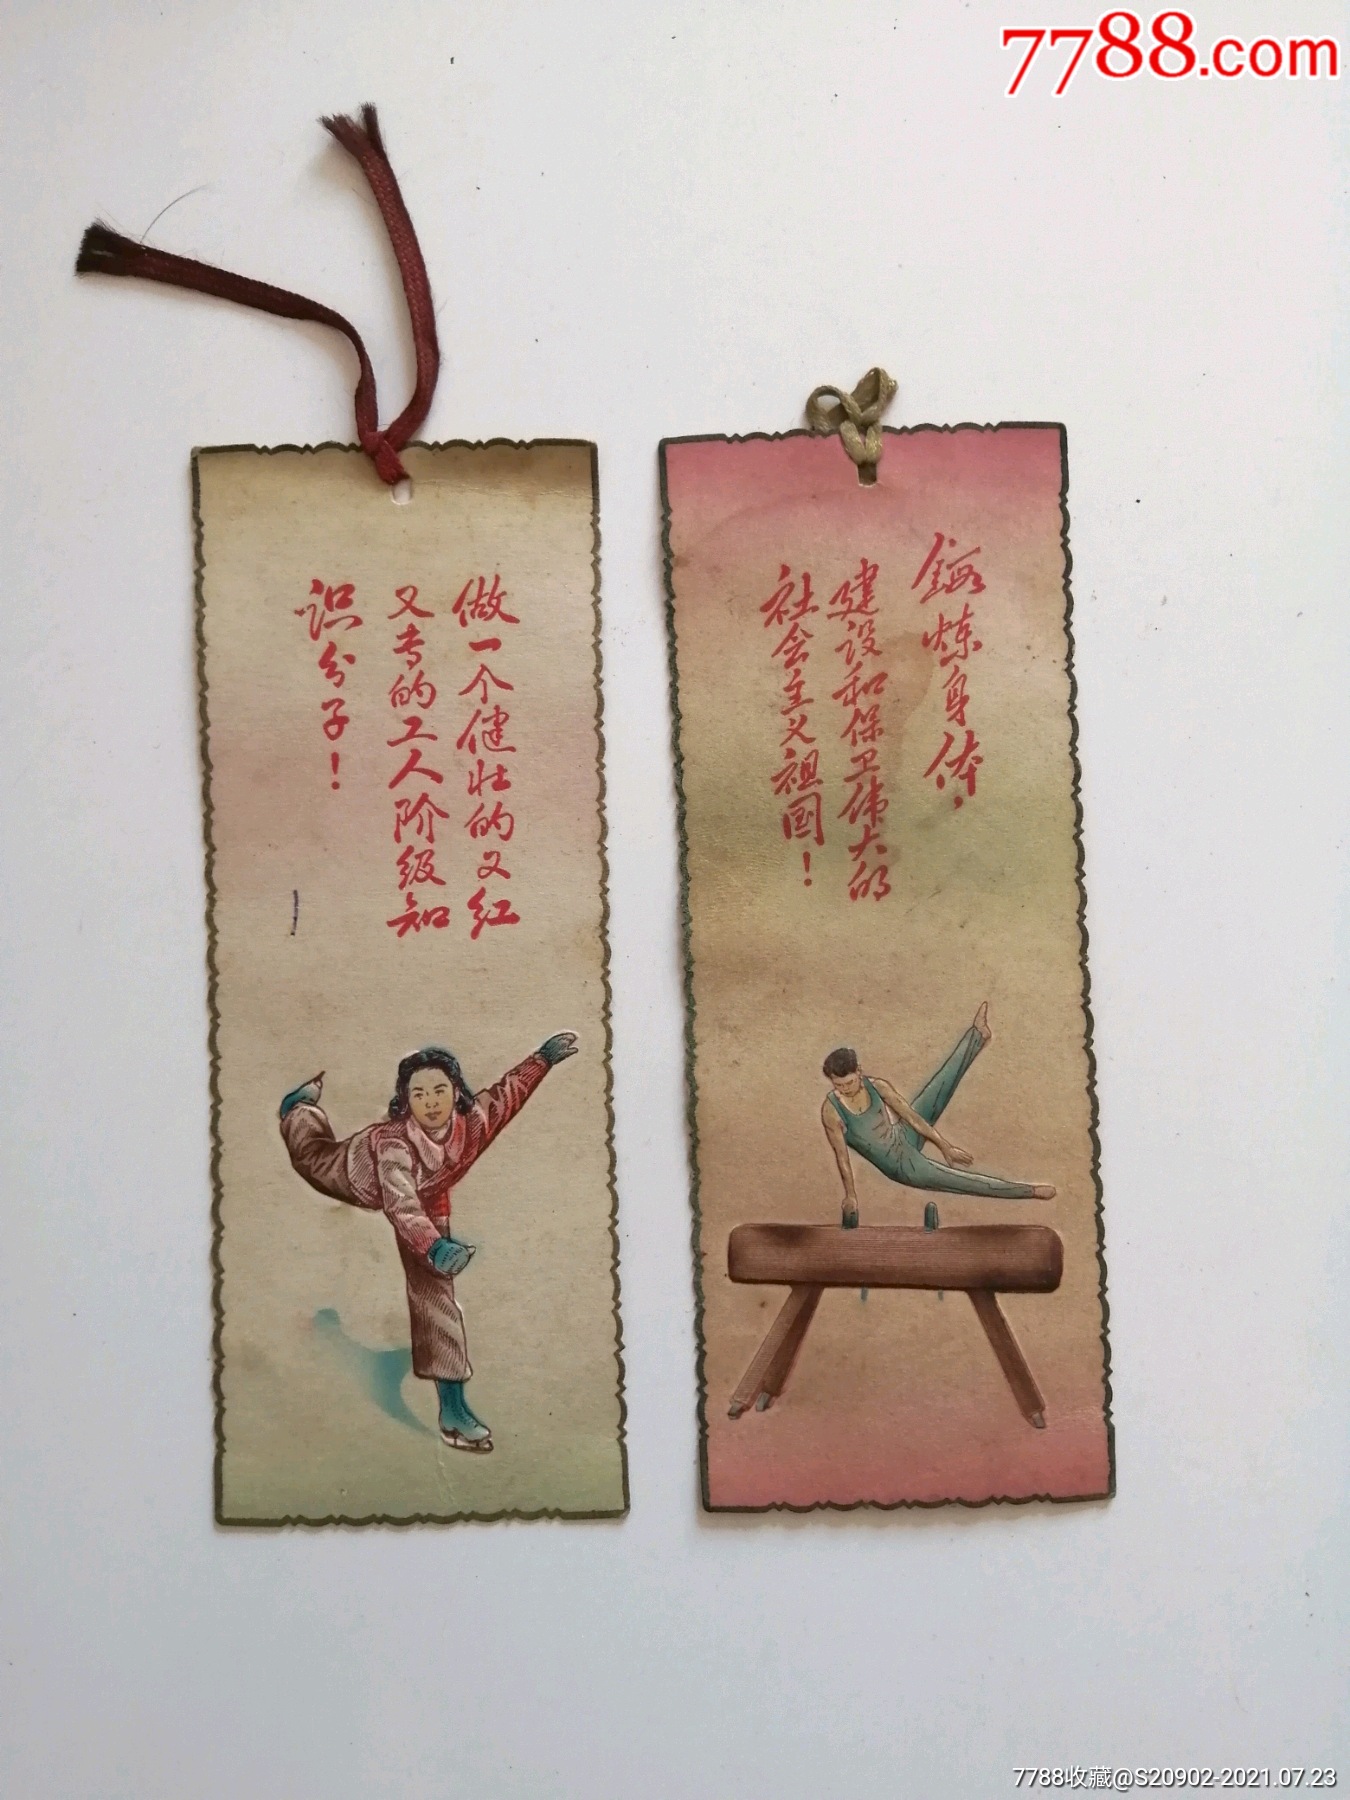 7788.com
做一个健壮的又红
又专的工人阶级知
识分子！
锻炼身体，
建设和保卫伟大的
社会主义祖国！
7788收藏@S20902-2021.07.23